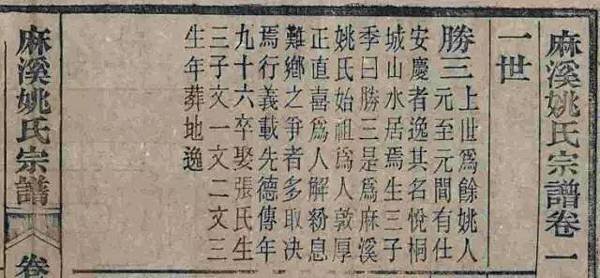 麻溪姚氏宗譜卷一
一世
勝三上世爲餘姚人
元至元間有仕
安慶者逸其名悅桐
城山水居焉生三子
季曰勝三是爲麻溪
姚氏始祖爲人敦厚
正直喜爲人解紛息
難鄉之爭者多取決
焉行義載先德傳年
九十六卒娶張氏生
三子文一文二文三
生年葬地逸
麻溪姚氏宗譜
卷